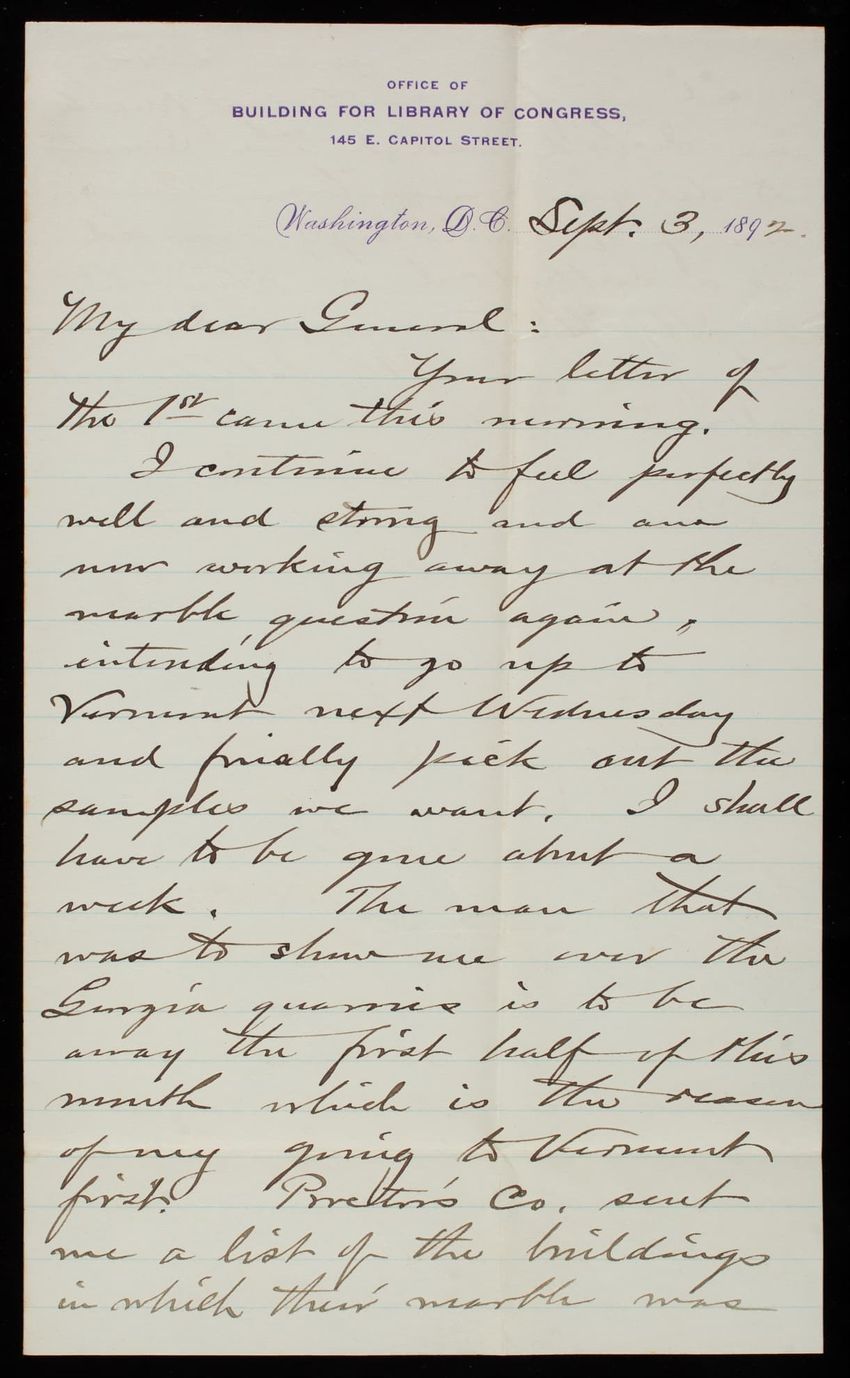 OFFICE OF
BUILDING FOR LIBRARY OF CONGRESS,
145 E. CAPITOL STREET.
Washington, D.C. Sept. 3, 1892.
My dear General:
Your letter of
the 1st came this morning.
I continue to feel perfectly
well and strong and am
now working away at the
marble question again,
intending to go up to
Vermont next Wednesday
and finally pick out the
samples we want. I shall
have to be gone about a
week. The man that
was to show me over the
Georgia quarries is to be
away the first half of this
month which is the reason
of my going to Vermont
first. Proctor's Co. sent
me a list of the buildings
in which their marble was